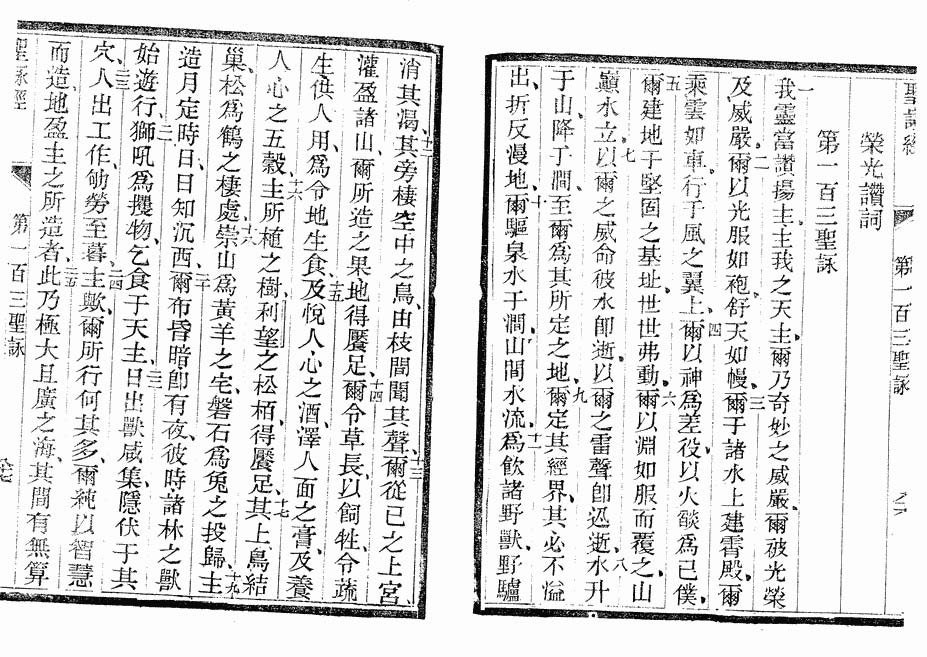 聖詠經
第一百三聖詠
榮光讚詞
第一百三聖詠
一我靈當讚揚主主我之天主爾乃奇妙之威嚴爾破光榮
及威嚴二爾以光服如袍舒天如幔三爾于諸水上建霄殿爾
乘雲如車行于風之翼上四爾以神為差役以火燄為己僕
五爾建地于堅固之基址世世弗動六爾以淵如服而覆之山
巔水立以爾之七威命彼水卽逝以爾之雷聲卽迯逝八水升
于山降于澗至爾為其所定之地九爾定其經界其必不溢
出折反漫地十爾驅泉水于澗山間水流十一為飲諸野獸野驢
消其渴十二其旁棲空中之鳥由枝間聞其聲十三爾從己之上宮
灌盈諸山爾所造之果地得饜足十四爾令草長以飼牲令蔬
生供人用為令地生食十五及悅人心之酒澤人面之膏及養
人心之五穀十六主所植之樹利望之松栢得饜足十七其上鳥結
巢松為鶴之棲處十八崇山為黃羊之宅磐石為兔之投歸十九主
造月定時日日知沉西二十爾布昏暗卽有夜彼時諸林之獸
始遊行二一獅吼為攫物乞食于天主二二日出獸咸集隱伏于其
穴二三人出工作劬勞至暮二四主歟爾所行何其多爾純以智慧
而造地盈主之所造者二五此乃極大且廣之海其間有無算
聖詠經
第一百三聖詠